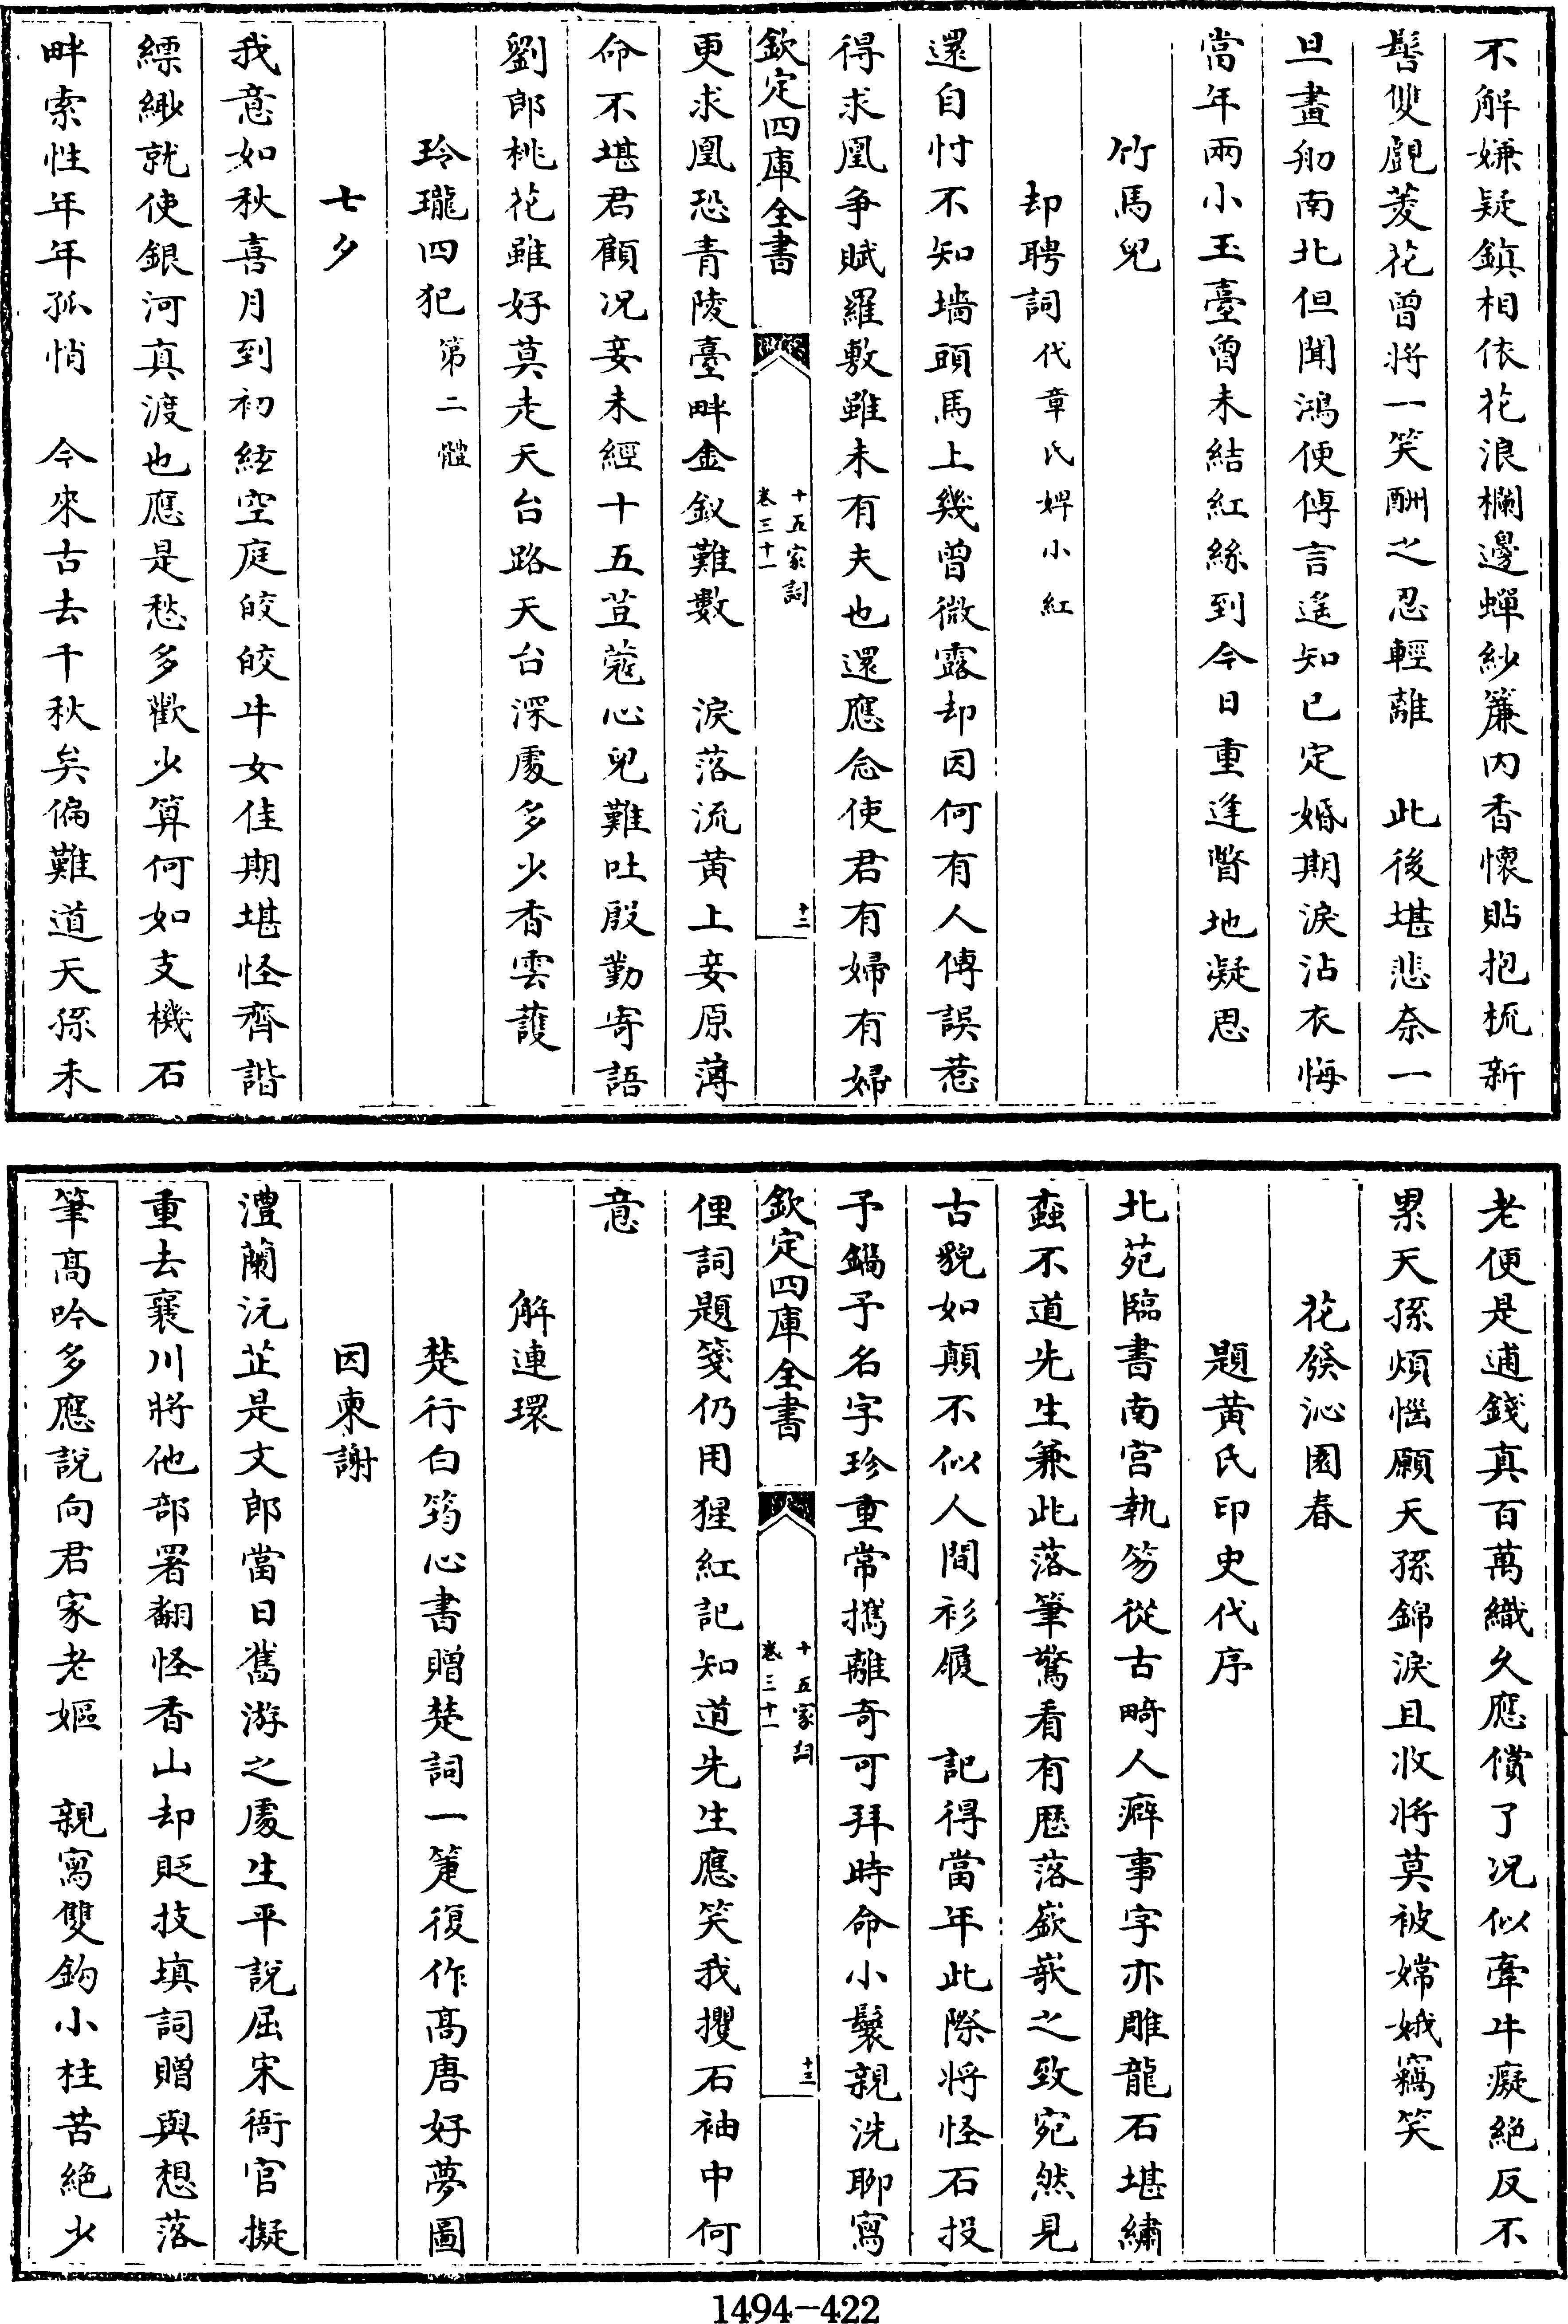 不解嫌疑鎮相依花浪欄邊蟬紗簾内香懷貼抱梳新
髻雙覷菱花曾將一笑酬之忍輕離　此後堪悲奈一
旦畫舠南北但聞鴻便傳言遙知已定婚期淚沾衣悔
當年兩小玉臺曾未結紅絲到今日重逢瞥地凝思
竹馬兒
却聘詞代章氏婢小紅
還自忖不知墻頭馬上幾曾微露却因何有人傳誤惹
得求凰爭賦羅敷雖未有夫也還應念使君有婦有婦
欽定四庫全書
十五家詞
卷三十一
十二
更求凰恐青陵臺畔金釵難數　淚落流黄上妾原薄
命不堪君顧况妾未經十五荳蔻心兒難吐殷勤寄語
劉郎桃花雖好莫走天台路天台深處多少香雲護
玲瓏四犯第二體
七夕
我意如秋喜月到初絃空庭皎皎牛女佳期堪怪齊諧
縹緲就使銀河真渡也應是愁多歡少算何如支機石
畔索性年年孤悄　今來古去千秋矣偏難道天孫未
老便是逋錢真百萬織久應償了况似牽牛癡絶反不
累天孫煩惱願天孫錦淚且收將莫被嫦娥竊笑
花發沁園春
題黄氏印史代序
北苑臨書南宫執笏從古畸人癖事字亦雕龍石堪繡
蝨不道先生兼此落筆驚看有歷落嶔嶔之致宛然見
古貌如顛不似人間衫履　記得當年此際將怪石投
予鍋予名字珍重常攜離奇可拜時命小鬟親洗聊寫
欽定四庫全書
十五家詞
卷三十一
十三
俚詞題箋仍用猩紅記知道先生應笑我攫石袖中何
意
解連環
楚行白筠心書贈楚詞一箑復作高唐好夢圖
因柬謝
澧蘭沅芷是文郎當日舊游之處生平說屈宋衙官擬
重去襄川將他部署翻怪香山却貶技填詞贈與想落
筆高吟多應說向君家老嫗　親寫雙鈎小柱苦絶少
1494—422